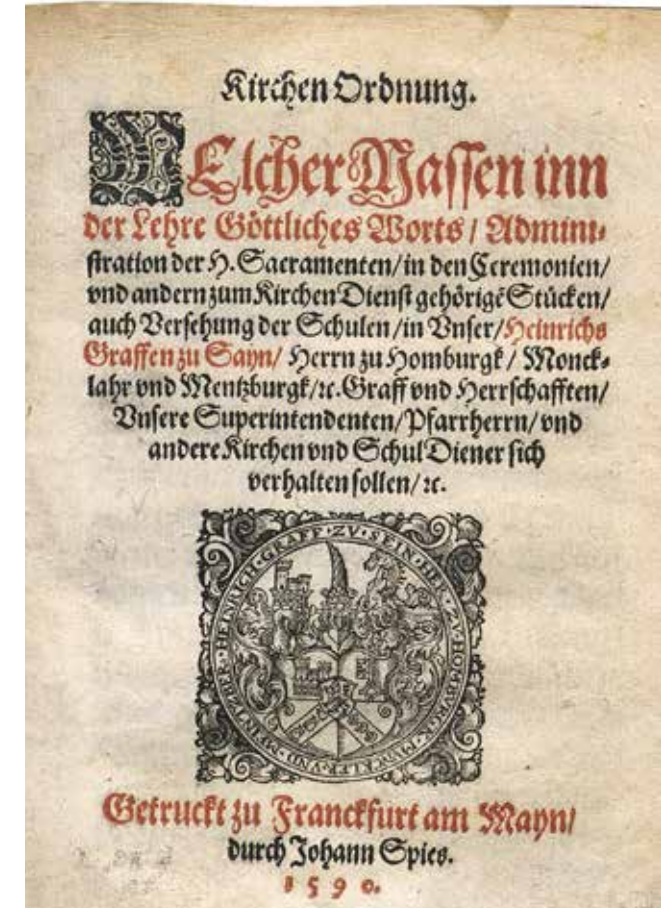 Kirchen Ordnung.
WElcher Massen inn
der Lehre Göttliches Worts / Admini-
stration der H. Sacramenten / in den Ceremonien /
vnd andern zum Kirchen Dienst gehörigē Stücken /
auch Versehung der Schulen / in Vnser / Heinrichs
Graffen zu Sayn / Herrn zu Homburgk / Monck-
lahr vnd Mentzburgk / ꝛc. Graff vnd Herrschafften /
Vnsere Superintendenten / Pfarrherrn / vnd
andere Kirchen vnd Schul Diener sich
verhalten sollen / ꝛc.
HEINRICH · GRAFF · ZV · SEIN · HER · ZV · HOMBVRGK ·
VND ·
Getruckt zu Franckfurt am Mayn /
durch Johann Spies.
1590.